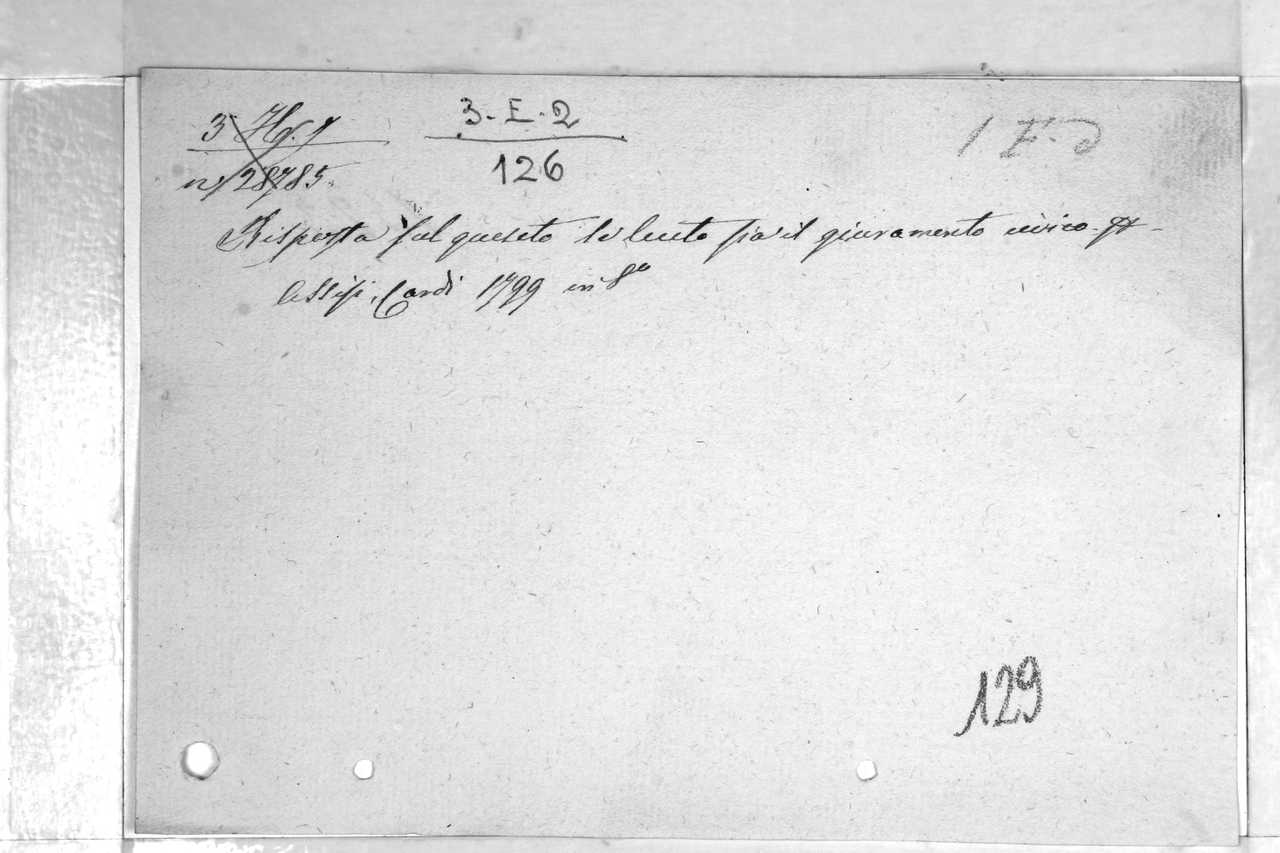 3-E-2
126
n. 28785.
Risposta sul quesito se lecito sia il giuramento civico
Assisi, Sardi 1799 in 8º
129